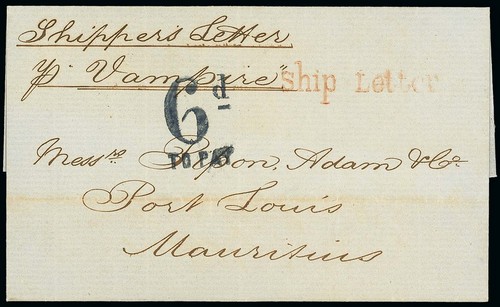 Shippers Letter
p "Vampire"
Ship Letter
6d
TO PAY
Messrs Pipon, Adam & Co
Port Louis
Mauritius